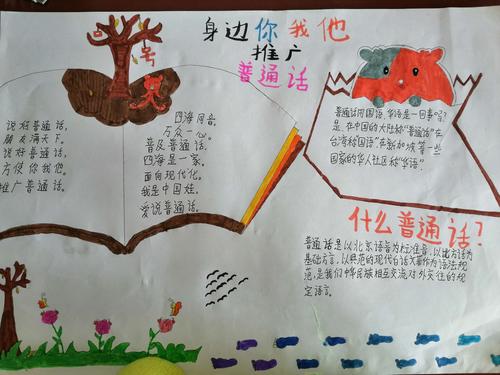 身边你我他
推广
普通话
号
说好普通话，
朋友满天下。
说好普通话，
方便你我他。
推广普通话，
四海同音，
万众一心。
普及普通话，
四海是一家。
面向现代化。
我是中国娃，
爱说普通话。
普通话同国语，华语是一回事吗？
是，在中国的大陆称“普通话”在
台湾称“国语”，在新加坡等一些
国家的华人社区称“华语”
什么普通话？
普通话是以北京语音为标准音，以北方话为
基础方言，以典范的现代白话文著作为语法规
范，是我们中华民族相互交流对外交往的规
定语言。